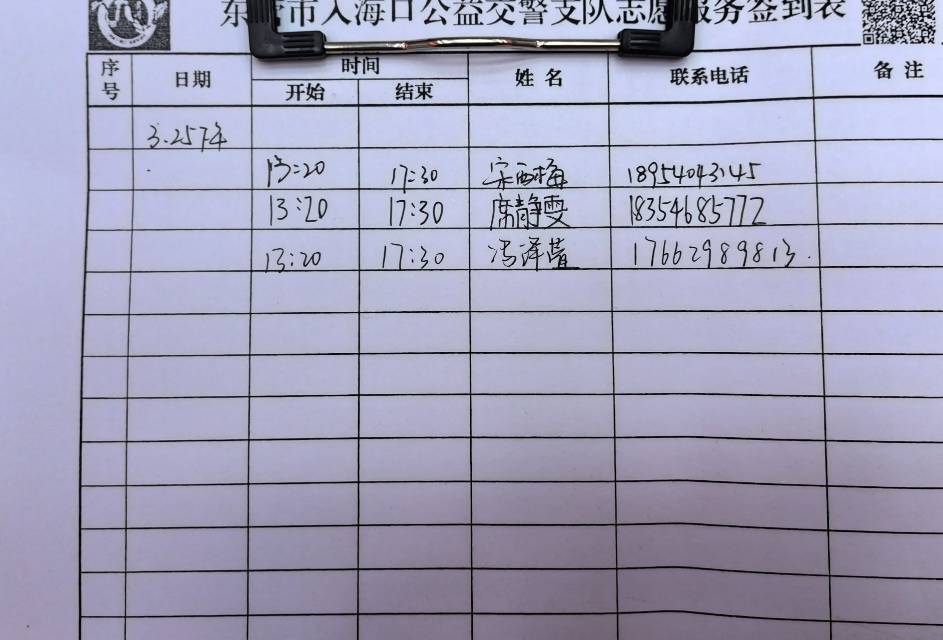 东营市入海口公益交警支队志愿服务签到表
序号 日期 时间 姓名 联系电话 备注
开始 结束
3.25下午
13:20 17:30 宋西梅 18954043145
13:20 17:30 席静雯 18354685772
13:20 17:30 冯泽萱 17662989813